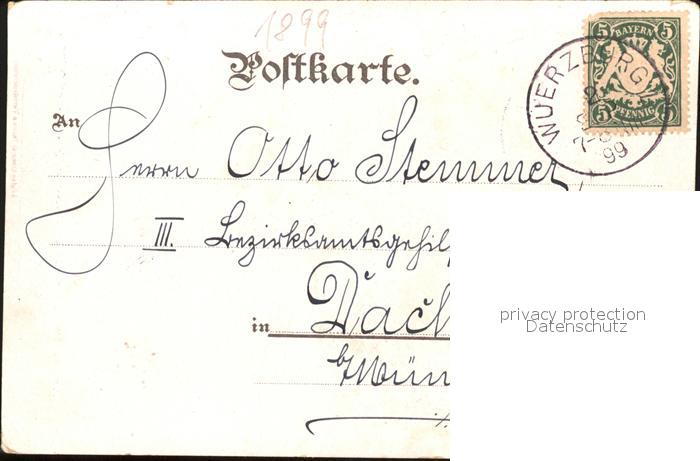 1899
Postkarte.
BAYERN
5 5
5 PFENNIG
WUERZBURG
99
An
Herrn Otto Stemmer
III. Bezirksamtsgehil
in Dach
b/Mün
privacy protection
Datenschutz